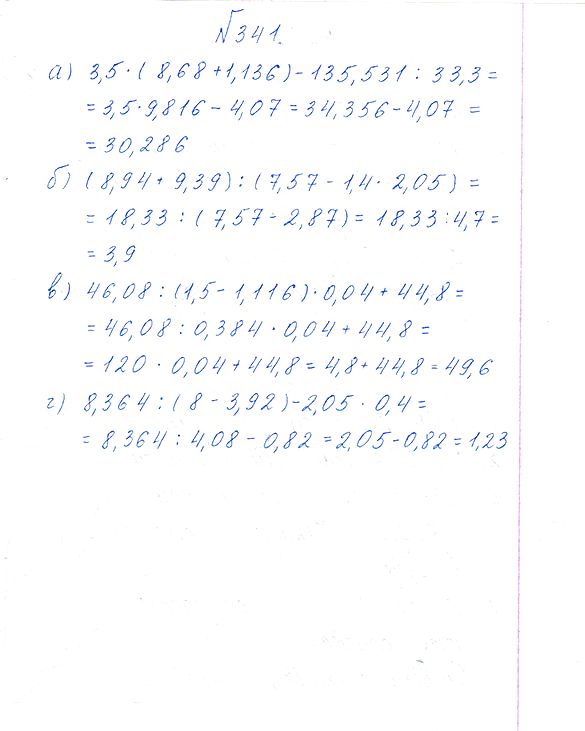 №341.
а) 3,5·(8,68+1,136)-135,531:33,3=
=3,5·9,816-4,07=34,356-4,07=
=30,286
б) (8,94+9,39):(7,57-1,4·2,05)=
=18,33:(7,57-2,87)=18,33:4,7=
=3,9
в) 46,08:(1,5-1,116)·0,04+44,8=
=46,08:0,384·0,04+44,8=
=120·0,04+44,8=4,8+44,8=49,6
г) 8,364:(8-3,92)-2,05·0,4=
=8,364:4,08-0,82=2,05-0,82=1,23